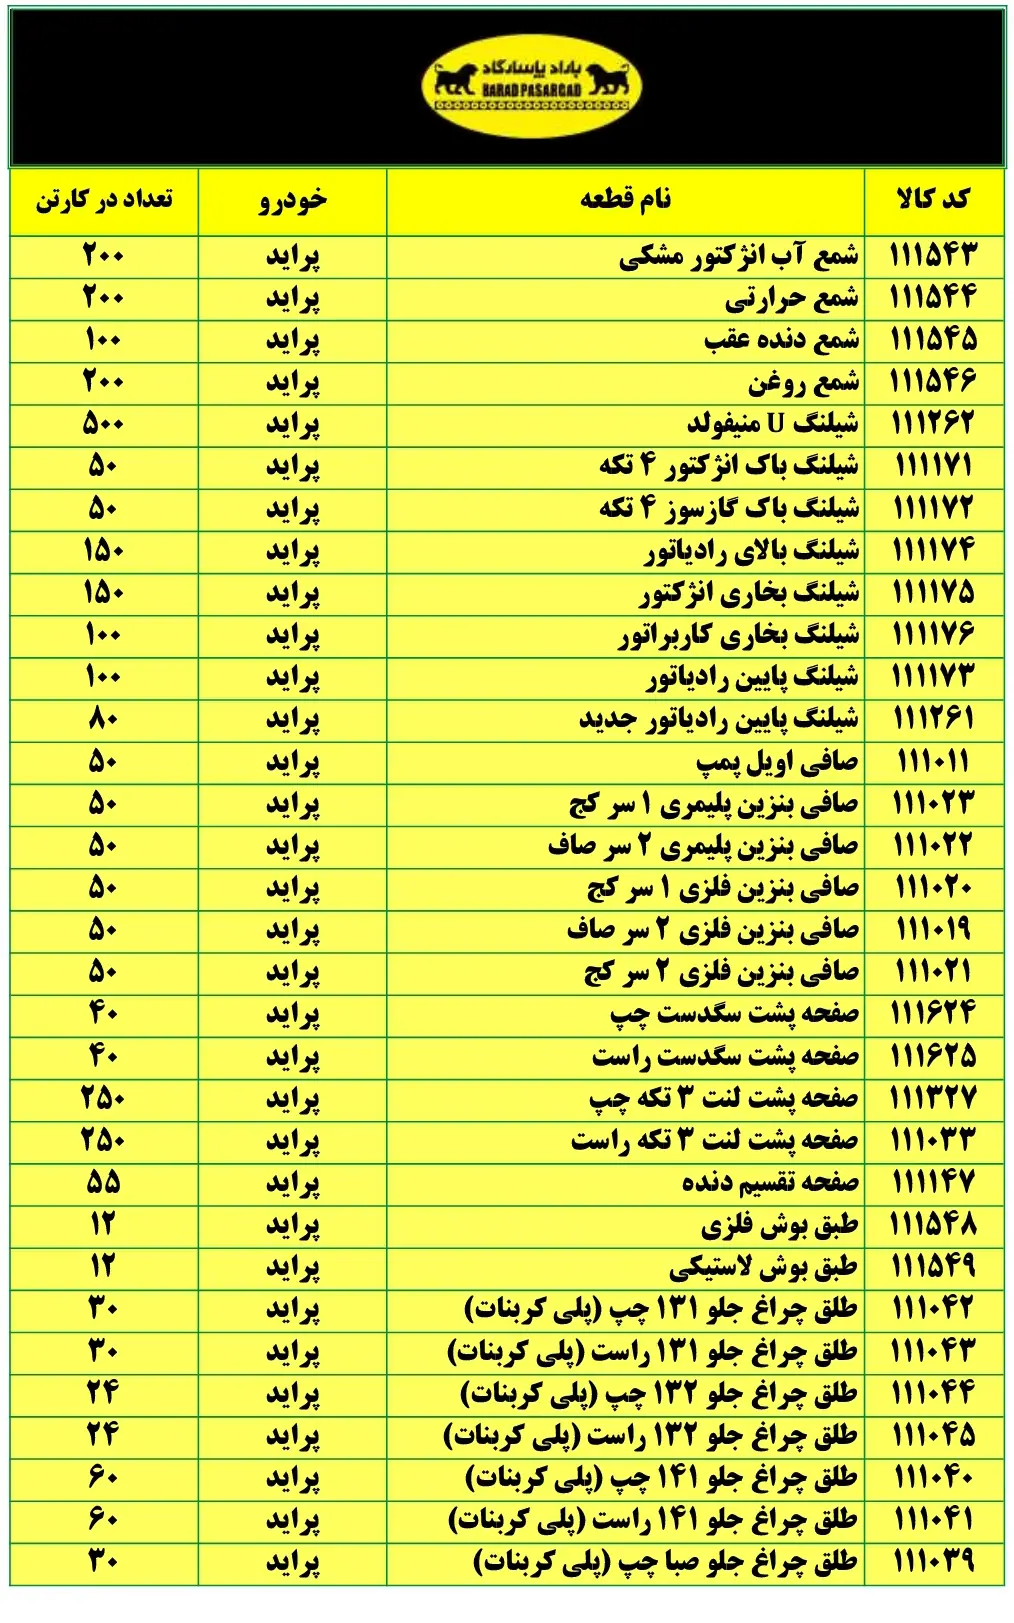 باراد پاسارگاد
BARAD PASARGAD
کد کالا نام قطعه خودرو تعداد در کارتن
۱۱۱۵۴۳ شمع آب انژکتور مشکی پراید ۲۰۰
۱۱۱۵۴۴ شمع حرارتی پراید ۲۰۰
۱۱۱۵۴۵ شمع دنده عقب پراید ۱۰۰
۱۱۱۵۴۶ شمع روغن پراید ۲۰۰
۱۱۱۲۶۲ شیلنگ U منیفولد پراید ۵۰۰
۱۱۱۱۷۱ شیلنگ باک انژکتور ۴ تکه پراید ۵۰
۱۱۱۱۷۲ شیلنگ باک گازسوز ۴ تکه پراید ۵۰
۱۱۱۱۷۴ شیلنگ بالای رادیاتور پراید ۱۵۰
۱۱۱۱۷۵ شیلنگ بخاری انژکتور پراید ۱۵۰
۱۱۱۱۷۶ شیلنگ بخاری کاربراتور پراید ۱۰۰
۱۱۱۱۷۳ شیلنگ پایین رادیاتور پراید ۱۰۰
۱۱۱۲۶۱ شیلنگ پایین رادیاتور جدید پراید ۸۰
۱۱۱۰۱۱ صافی اویل پمپ پراید ۵۰
۱۱۱۰۲۳ صافی بنزین پلیمری ۱ سر کج پراید ۵۰
۱۱۱۰۲۲ صافی بنزین پلیمری ۲ سر صاف پراید ۵۰
۱۱۱۰۲۰ صافی بنزین فلزی ۱ سر کج پراید ۵۰
۱۱۱۰۱۹ صافی بنزین فلزی ۲ سر صاف پراید ۵۰
۱۱۱۰۲۱ صافی بنزین فلزی ۲ سر کج پراید ۵۰
۱۱۱۶۲۴ صفحه پشت سگدست چپ پراید ۴۰
۱۱۱۶۲۵ صفحه پشت سگدست راست پراید ۴۰
۱۱۱۳۲۷ صفحه پشت لنت ۳ تکه چپ پراید ۲۵۰
۱۱۱۰۳۳ صفحه پشت لنت ۳ تکه راست پراید ۲۵۰
۱۱۱۱۴۷ صفحه تقسیم دنده پراید ۵۵
۱۱۱۵۴۸ طبق بوش فلزی پراید ۱۲
۱۱۱۵۴۹ طبق بوش لاستیکی پراید ۱۲
۱۱۱۰۴۲ طلق چراغ جلو ۱۳۱ چپ (پلی کربنات) پراید ۳۰
۱۱۱۰۴۳ طلق چراغ جلو ۱۳۱ راست (پلی کربنات) پراید ۳۰
۱۱۱۰۴۴ طلق چراغ جلو ۱۳۲ چپ (پلی کربنات) پراید ۲۴
۱۱۱۰۴۵ طلق چراغ جلو ۱۳۲ راست (پلی کربنات) پراید ۲۴
۱۱۱۰۴۰ طلق چراغ جلو ۱۴۱ چپ (پلی کربنات) پراید ۶۰
۱۱۱۰۴۱ طلق چراغ جلو ۱۴۱ راست (پلی کربنات) پراید ۶۰
۱۱۱۰۳۹ طلق چراغ جلو صبا چپ (پلی کربنات) پراید ۳۰